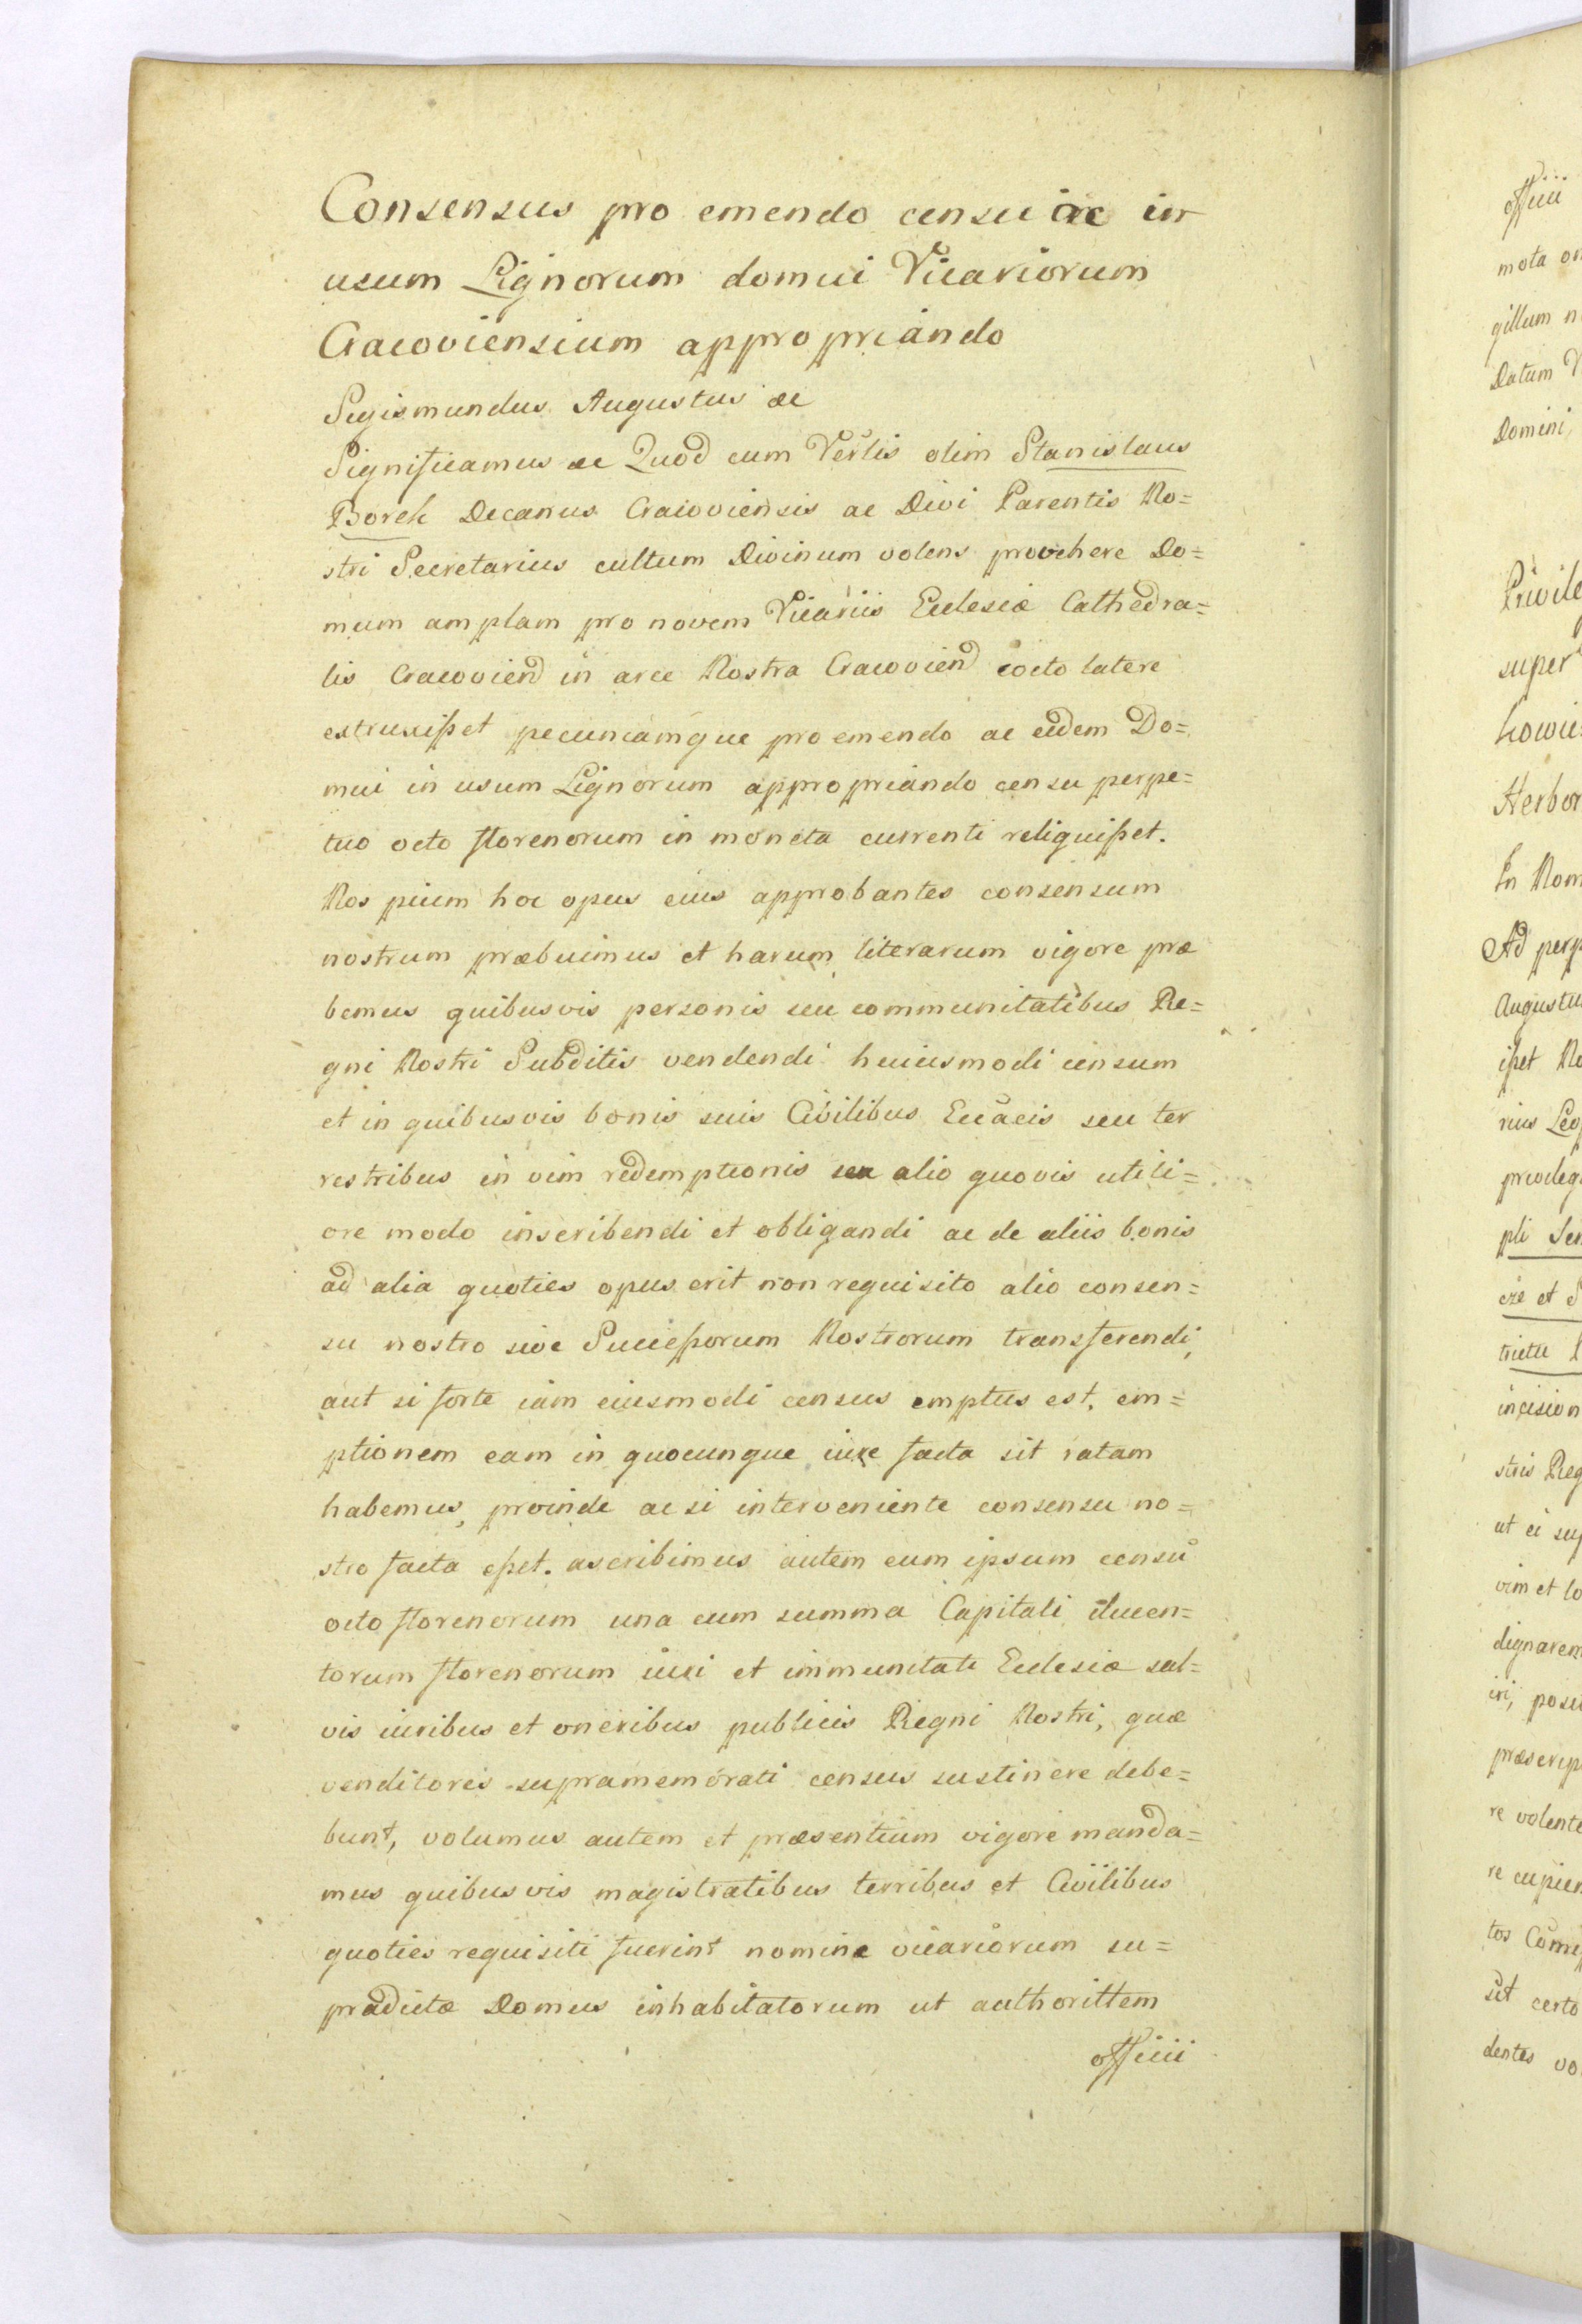 Consensus pro emendo censu ac in
usum Lignorum domui Vicariorum
Cracoviensium appropriando
Sigismundus Augustus ac
Significamus ac Quod cum Vertis olim Stanislaus
Borek Decanus Cracoviensis ac Divi Parentis No=
stri Secretarius cultum Divinum volens provehere Do=
mum amplam pro novem Vicariis Ecclesiæ Cathedra=
lis Cracoviend in arce Nostra Cracoviend cocto latere
extruxißet pecuniamque pro emendo ac eidem Do=
mui in usum Lignorum appropriando censu perpe=
tuo octo florenorum in moneta currenti reliquißet.
Nos pium hoc opus eius approbantes consensum
nostrum præbuimus et harum literarum vigore præ
bemus quibusvis personis seu communitatibus Re=
gni Nostri Subditis vendendi huiusmodi censum
et in quibusvis bonis suis Civilibus Eccacis seu ter
restribus in vim redemptionis seu alio quovis utili=
ore modo inscribendi et obligandi ac de aliis bonis
ad alia quoties opus erit non requisito alio consen=
su nostro sive Succeßorum Nostrorum transferendi,
aut si forte iam eiusmodi census emptus est, em=
ptionem eam in quocunque iure facta sit ratam
habemus, proinde ac si interveniente consensu no=
stro facta eßet. ascribimus autem eum ipsum censu
octo florenorum una cum summa Capitali ducen=
torum florenorum iuri et immunitati Ecclesiæ sal=
vis iuribus et oneribus publicis Regni Nostri, quæ
venditores supramemorati census sustinere debe=
bunt, volumus autem et præsentium vigore manda=
mus quibusvis magistratibus terribus et Civilibus
quoties requisiti fuerint nomine vicariorum su=
pradictæ Domus inhabitatorum ut authorittem
officii
officii
mota
gillum
Datum
Domini,
super
Herbor
In Nom
Ad perp
Augustu
ißet
rius
privileg
pli
et
incision
stris Reg
ut ei
vim et
dignarem
iri, posu
præscrip
re volente
re cupien
tos
sit certo
dentes vo